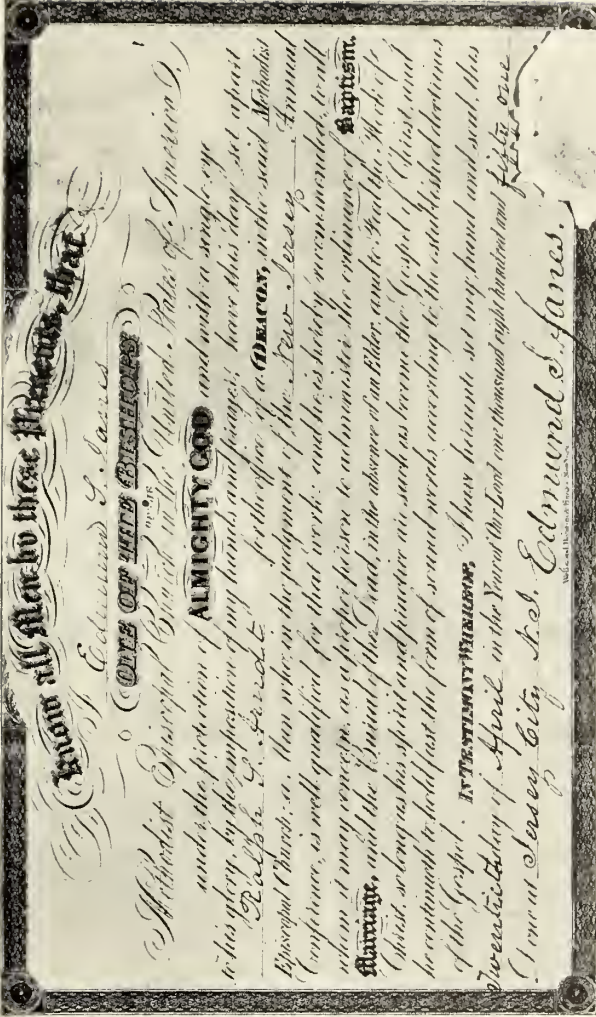 Know all Men by these Presents, that
I, Edmund S. Janes
ONE OF THE BISHOPS
OF THE
Methodist Episcopal Church in the United States of America,
under the protection of ALMIGHTY GOD and with a single eye
to his glory, by the imposition of my hands and prayer, have this day set apart
Ralph S. Arndt for the office of a DEACON, in the said Methodist
Episcopal Church; a man who in the judgment of the New Jersey Annual
Conference, is well qualified for that work: and he is hereby recommended, to all
whom it may concern, as a proper person to administer the ordinances of Baptism,
Marriage, and the Burial of the Dead, in the absence of an Elder, and to feed the flock of
Christ, so long as his spirit and practice are such as become the Gospel of Christ, and
he continueth to hold fast the form of sound words, according to the established doctrines
of the Gospel. IN TESTIMONY WHEREOF, I have hereunto set my hand and seal, this
Twentieth day of April in the Year of Our Lord one thousand eight hundred and fifty one
Done at Jersey City N.J. Edmund S. Janes.